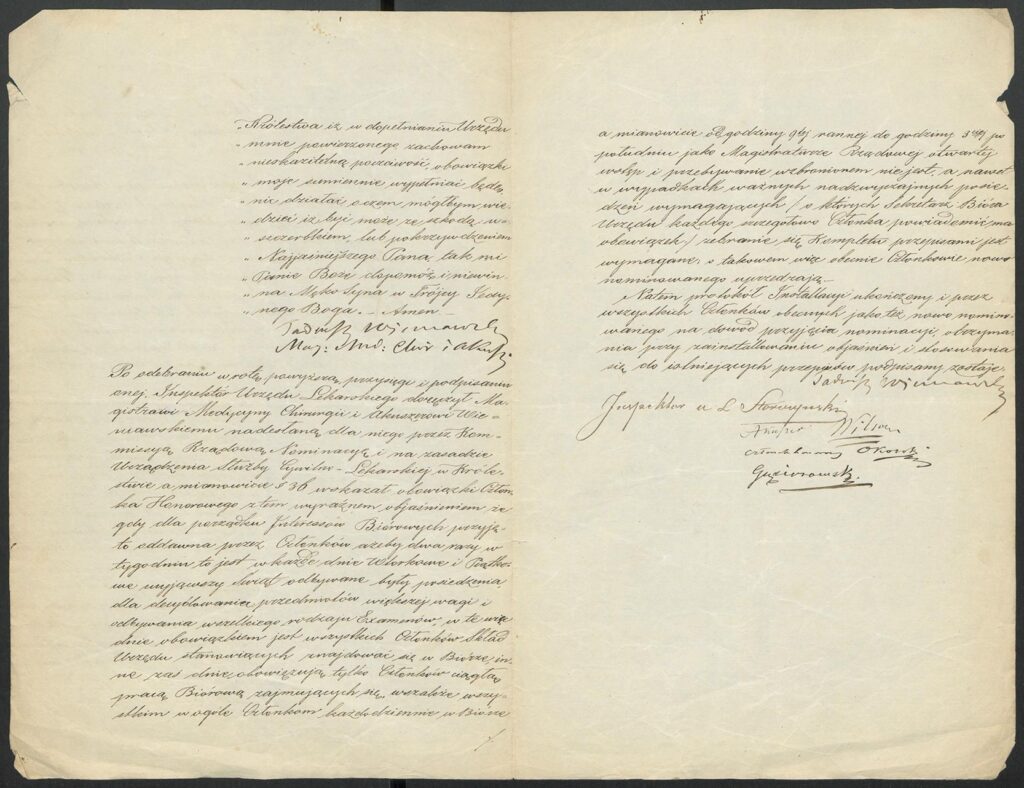 „Królestwa iż w dopełnianiu Urzędu
„ mnie powierzonego zachowam
„ nieskazitelną poczciwość, obowiązki
„ moje sumiennie wypełniać będę,
„ nie działać o czem mógłbym wie-
„ dzieć iż być może ze szkodą, u-
„ szczerbkiem, lub pokrzywdzeniem
„ Najjaśniejszego Pana, tak mi
„ Panie Boże dopomóż i niewin-
„ na Męko Syna w Trójcy Jedy-
„ nego Boga. – Amen –
Tadeusz Wieniawski
Mag: Med: Chir i Akusz.
Po odebraniu w rotę powyższą przysięgę i podpisaniu
onej, Inspektór Urzędu Lekarskiego doręczył Ma-
gistrowi Medycyny Chirurgii i Akuszerowi Wie-
niawskiemu nadesłaną dla niego przez Kom-
missyą Rządową Nominacyą i na zasadzie
Urządzenia Służby Cywilno-Lekarskiej w Króle-
stwie a mianowicie § 36 wskazał obowiązki Człon-
ka Honorowego z tem wyraźnem objaśnieniem że
gdy dla porządku Interessów Biórowych przyję-
to oddawna przez Członków ażeby dwa razy w
tygodniu to jest w każde dnie Wtorkowe i Piątko-
we wyjąwszy Świąt odbywane były posiedzenia
dla decydowania przedmiotów większej wagi i
odbywania wszelkiego rodzaju Examenów, w te więc
dnie obowiązkiem jest wszystkich Członków Skład
Urzędu stanowiących znajdować się w Biórze in-
ne zaś dnie obowiązują tylko Członków ciągłą
pracą Biórową zajmujących się, wszakże wszy-
stkim w ogóle Członkom każdodziennie w Biórze
a mianowicie od godziny 9tej rannej do godziny 3ciej po
południu jako Magistraturze Rządowej otwartej
wstęp i przebywanie wzbronionem nie jest, a nawet
w wypadkach ważnych nadzwyczajnych posie-
dzeń wymagających / o których Sekretarz Bióra
Urzędu każdego szczegółowo Członka powiadomić ma
obowiązek / zebranie się Kompletu przepisami jest
wymagane, o takowem więc obecnie Członkowie nowo
nominowanego uprzedzają. –
Natem protokół Installacyi ukończony i przez
wszystkich Członków obecnych jako też nowo nomino-
wanego na dowód przyjęcia nominacyi, otrzyma-
nia przy zainstallowaniu objaśnień i stosowania
się do istniejących przepisów podpisany zostaje.
Tadeusz Wieniawski
Inspektor U L
Akuszer Wilson
Członek honorowy